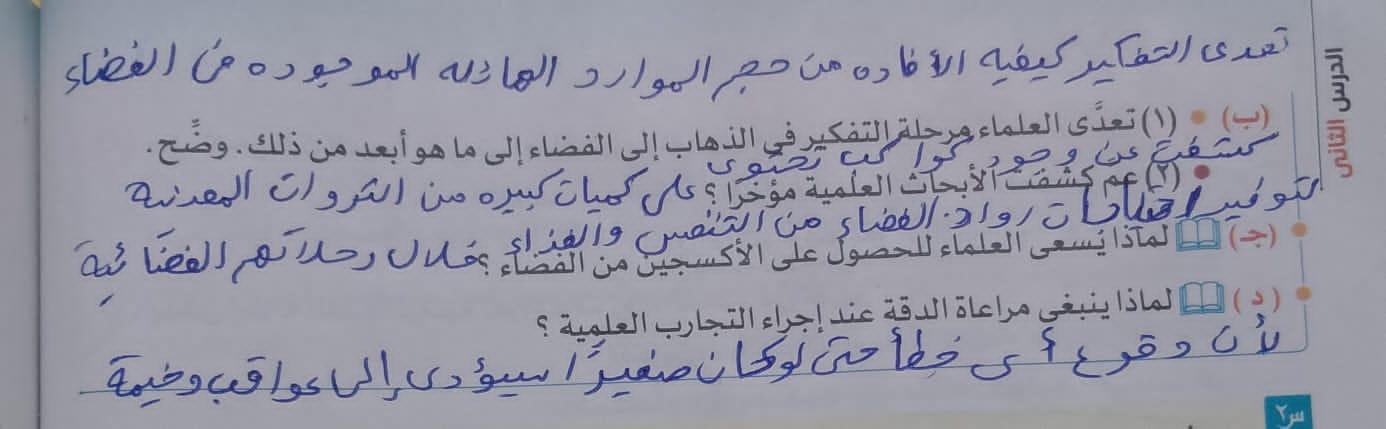 تعدى التفكير كيفيه الأفاده من حجم الموارد الهائله الموجوده فى الفضاء
(ب) • (١) تعدَّى العلماء مرحلة التفكير في الذهاب إلى الفضاء إلى ما هو أبعد من ذلك. وضِّح.
كشفت عن وجود كواكب تحتوى
• (٢) عم كشفت الأبحاث العلمية مؤخرًا؟ على كميات كبيره من الثروات المعدنية
لتوفير احتياجات رواد الفضاء من التنفس والغذاء
(جـ) لماذا يسعى العلماء للحصول على الأكسجين من الفضاء؟ خلال رحلاتهم الفضائية
(د) لماذا ينبغي مراعاة الدقة عند إجراء التجارب العلمية ؟
لأن وقوع أى خطأ حتى لو كان صغيرًا سيؤدى إلى عواقب وخيمة
س٢
الدرس الثاني